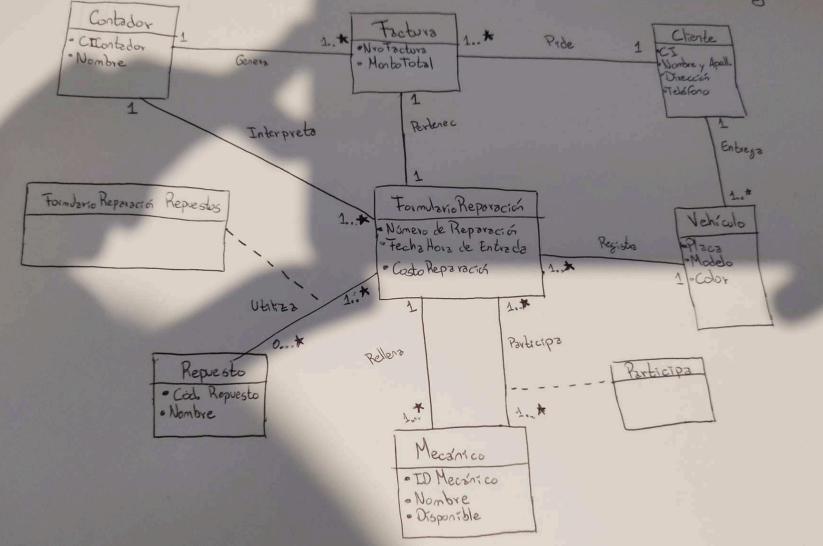 Contador
• CIContador
• Nombre
1
Genera
1..*
Factura
• NroFactura
• MontoTotal
1..*
Pide
1
Cliente
• CI
• Nombre y Apell.
• Dirección
• Teléfono
1
Interpreta
1..*
1
Pertenec
1
1
Entrega
1..*
FormularioReparación Repuestos
FormularioReparación
• Número de Reparación
• FechaHora de Entrada
• CostoReparación
1..*
Registra
1
Vehículo
• Placa
• Modelo
• Color
Utiliza
1..*
0...*
Repuesto
• Cód. Repuesto
• Nombre
1
Rellena
1..*
1..*
Participa
1..*
Participa
Mecánico
• ID Mecánico
• Nombre
• Disponible